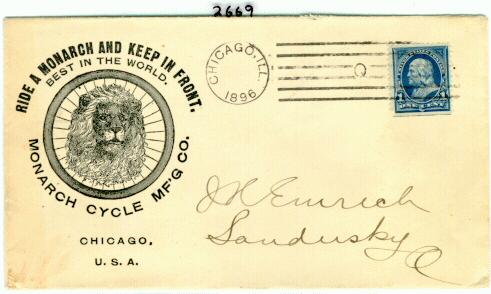 2669
RIDE A MONARCH AND KEEP IN FRONT.
BEST IN THE WORLD.
MONARCH CYCLE MF'G CO.
CHICAGO,
U. S. A.
CHICAGO, ILL.
1896
Q
1 ONE CENT 1
J H Emrich
Sandusky
O